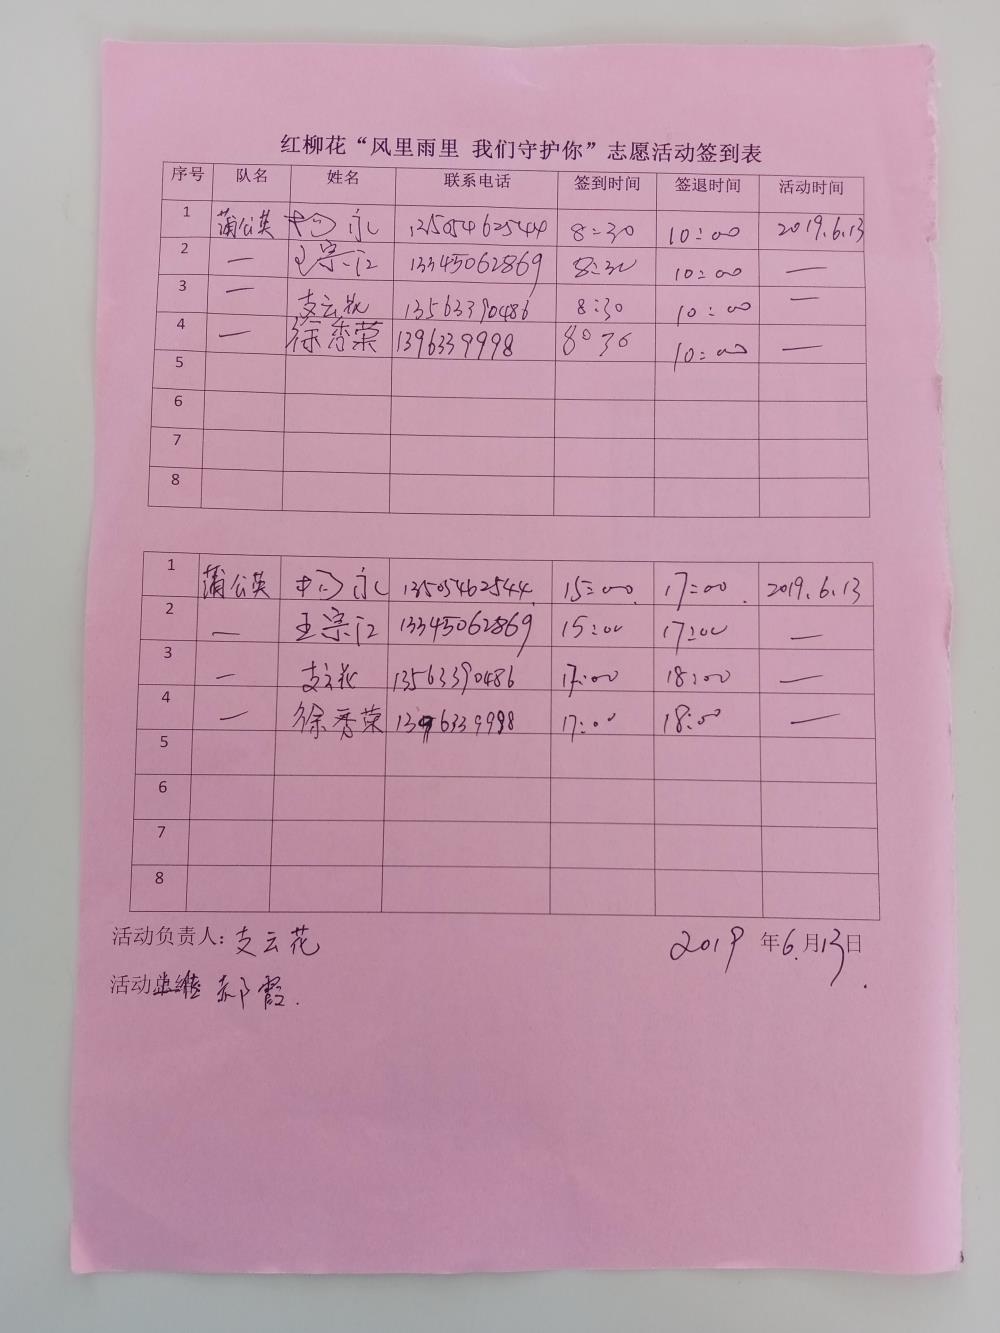 红柳花“风里雨里 我们守护你”志愿活动签到表
序号 队名 姓名 联系电话 签到时间 签退时间 活动时间
1 蒲公英 永 13505462544 8:30 10:00 2019.6.13
2 — 王宗江 13345062869 8:30 10:00 —
3 — 支云花 13563390486 8:30 10:00 —
4 — 徐秀荣 1396339998 8:30 10:00 —
5
6
7
8
1 蒲公英 永 13505462544 15:00 17:00 2019.6.13
2 — 王宗江 13345062869 15:00 17:00 —
3 — 支云花 13563390486 17:00 18:00 —
4 — 徐秀荣 1396339998 17:00 18:00 —
5
6
7
8
活动负责人：支云花 2019年6月13日
活动 郝霞.